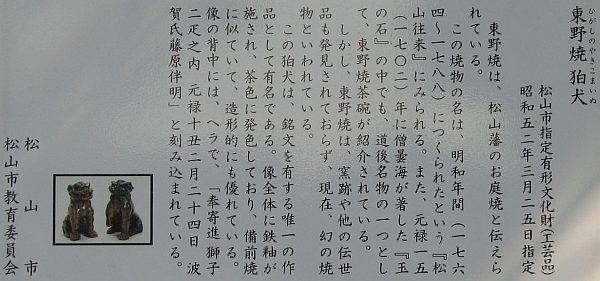 東野焼 狛犬
ひがしのやきこまいぬ
松山市指定有形文化財(工芸品)
昭和五二年三月二五日指定
東野焼は、松山藩のお庭焼と伝えら
れている。
この焼物の名は、明和年間(一七六
四～一七八八)につくられたという『松
山往来』にみられる。また、元禄一五
(一七〇二)年に僧曇海が著した『玉
の石』の中でも、道後名物の一つとし
て、東野焼茶碗が紹介されている。
しかし、東野焼は、窯跡や他の伝世
品も発見されておらず、現在、幻の焼
物といわれている。
この狛犬は、銘文を有する唯一の作
品として有名である。像全体に鉄釉が
施され、茶色に発色しており、備前焼
に似ていて、造形的にも優れている。
像の背中には、ヘラで、「奉寄進獅子
二疋之内 元禄十丑二月二十四日 波
賀氏藤原伴明」と刻み込まれている。
松山市
松山市教育委員会